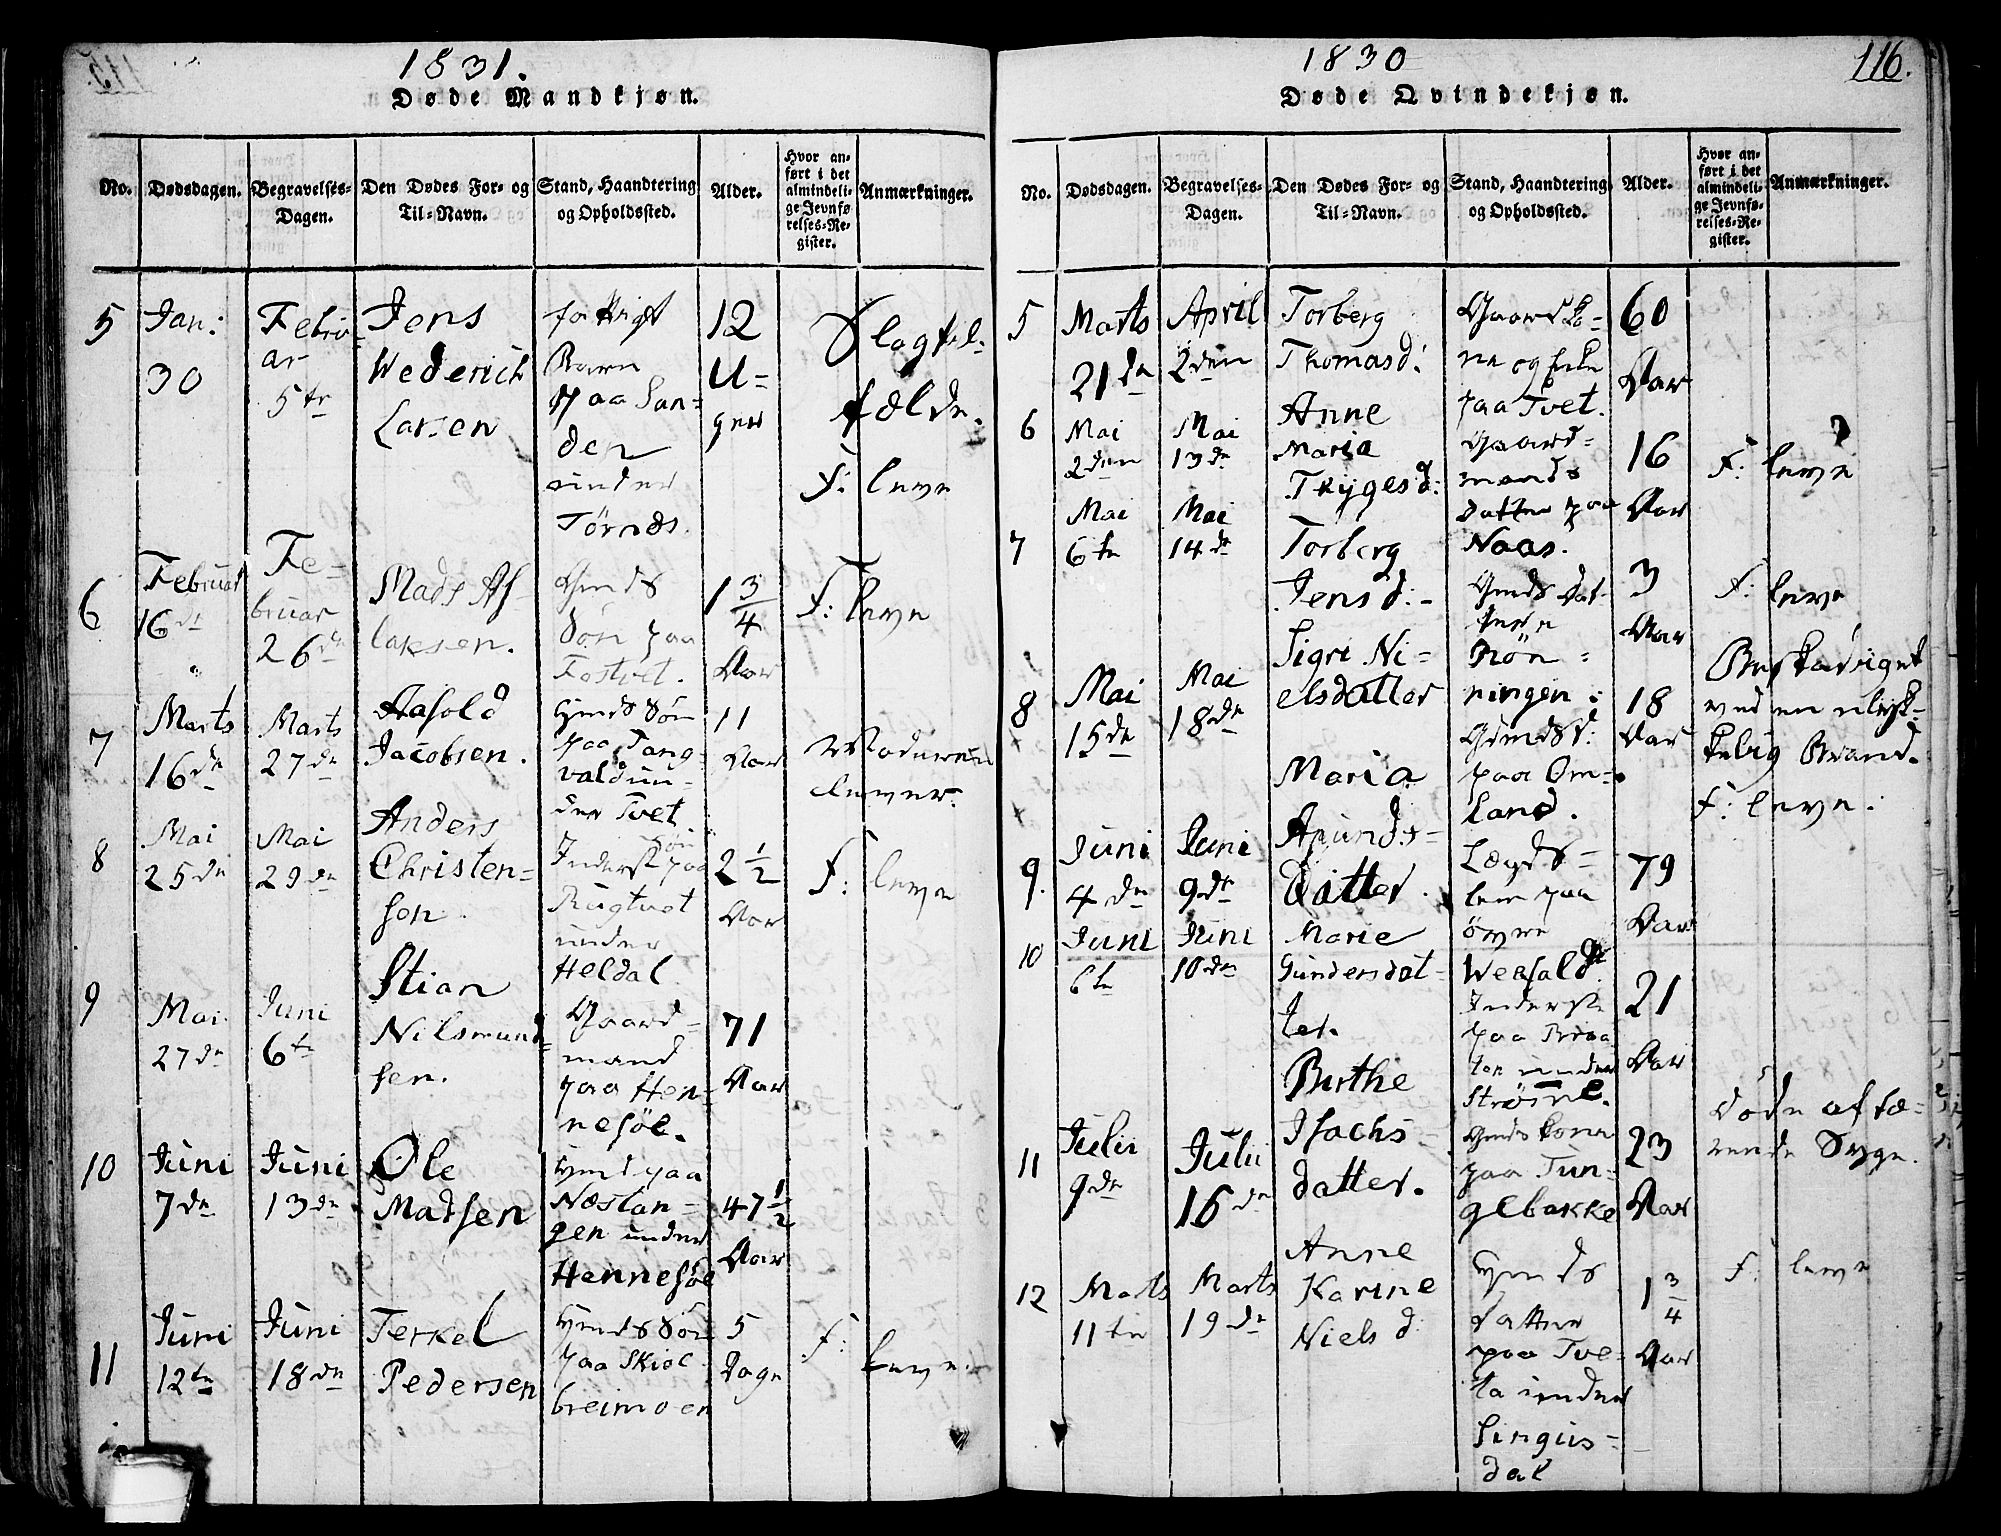 1831.
Døde Mandkjøn.
No.
Dødsdagen.
Begravelses-
Dagen.
Den Dødes For- og
Til-Navn.
Stand, Haandtering
og Opholdssted.
Alder.
Hvor an-
ført i det
almindeli-
ge Jevnfø-
relses-Re-
gister.
Anmærkninger.
5
Jan:
30
Febru-
ar
5te
Jens
Wederich
Larsen
Barn
paa San-
den
under
Törnæs.
12
U-
ger
F: leve
6
Februar
16de
Fe-
bruar
26de
Mads As-
laksen.
Gmds
Sön paa
Fostvet.
1 3/4
Aar
F: leve
7
Marts
16de
Marts
27de
Aasold
Jacobsen.
Gmds Sön
paa Tang-
vald un-
der Tvet.
11
Aar
8
Mai
25de
Mai
29de
Anders
Christen-
sen.
Sön
Inderst paa
Rugtvet
under
Heldal.
2 1/2
Aar
F: leve
9
Mai
27de
Juni
6te
Stian
Nilsmund-
sen.
Gaard-
mand
paa Hen-
nesöe.
71
Aar
10
Juni
7de
Juni
13de
Ole
Madsen
Gmd paa
Næstan-
gen under
Hennesöe
47 1/2
Aar
11
Juni
12te
Juni
18de
Terkel
Pedersen
Gmds Sön
paa Skiol-
breimoen
5
Dage
F: leve.
1830
116.
Døde Qvindekjøn.
No.
Dødsdagen.
Begravelses-
Dagen.
Den Dødes For- og
Til-Navn.
Stand, Haandtering
og Opholdssted.
Alder.
Hvor an-
ført i det
almindeli-
ge Jevnfø-
relses-Re-
gister.
Anmærkninger.
5
Marts
21de
April
2den
Torberg
Thomasd:
Gaardko-
ne og Enke
paa Tvet.
60
Aar
6
Mai
2den
Mai
13de
Anne
Maria
Trygesd:
Gaard-
mands
Datter paa
Naas.
16
Aar
F: leve
7
Mai
6te
Mai
14de
Torberg
Jensd:
Gmds Dat-
ter
Rön-
ningen:
3
Aar
F: leve
8
Mai
15de
Mai
18de
Sigri Ni-
elsdatter
Gmdsd:
paa Om-
land.
18
Aar
Beskadiget
ved en ulyk-
kelig Brand.
F: leve.
9.
Juni
4de
Juni
9de
Maria
Amunds-
Datter.
Lægds-
lem paa
övre
Weafald
79
Aar
10
Juni
6te
Juni
10de
Marie
Gundersdat-
ter.
Inderst
paa Braa
ten under
Ströme.
21
Aar
11
Julii
9de
Julii
16de
Birthe
Isachs-
datter.
Gmds kone
paa Tun-
gebakke
23
Aar
Döde af tæ-
rende Syge.
12
Marts
11te
Marts
19de
Anne
Karine
Niels d:
Gmds
Datter
paa Tve-
ta under
Lingus-
dal
1 3/4
Aar
F: leve